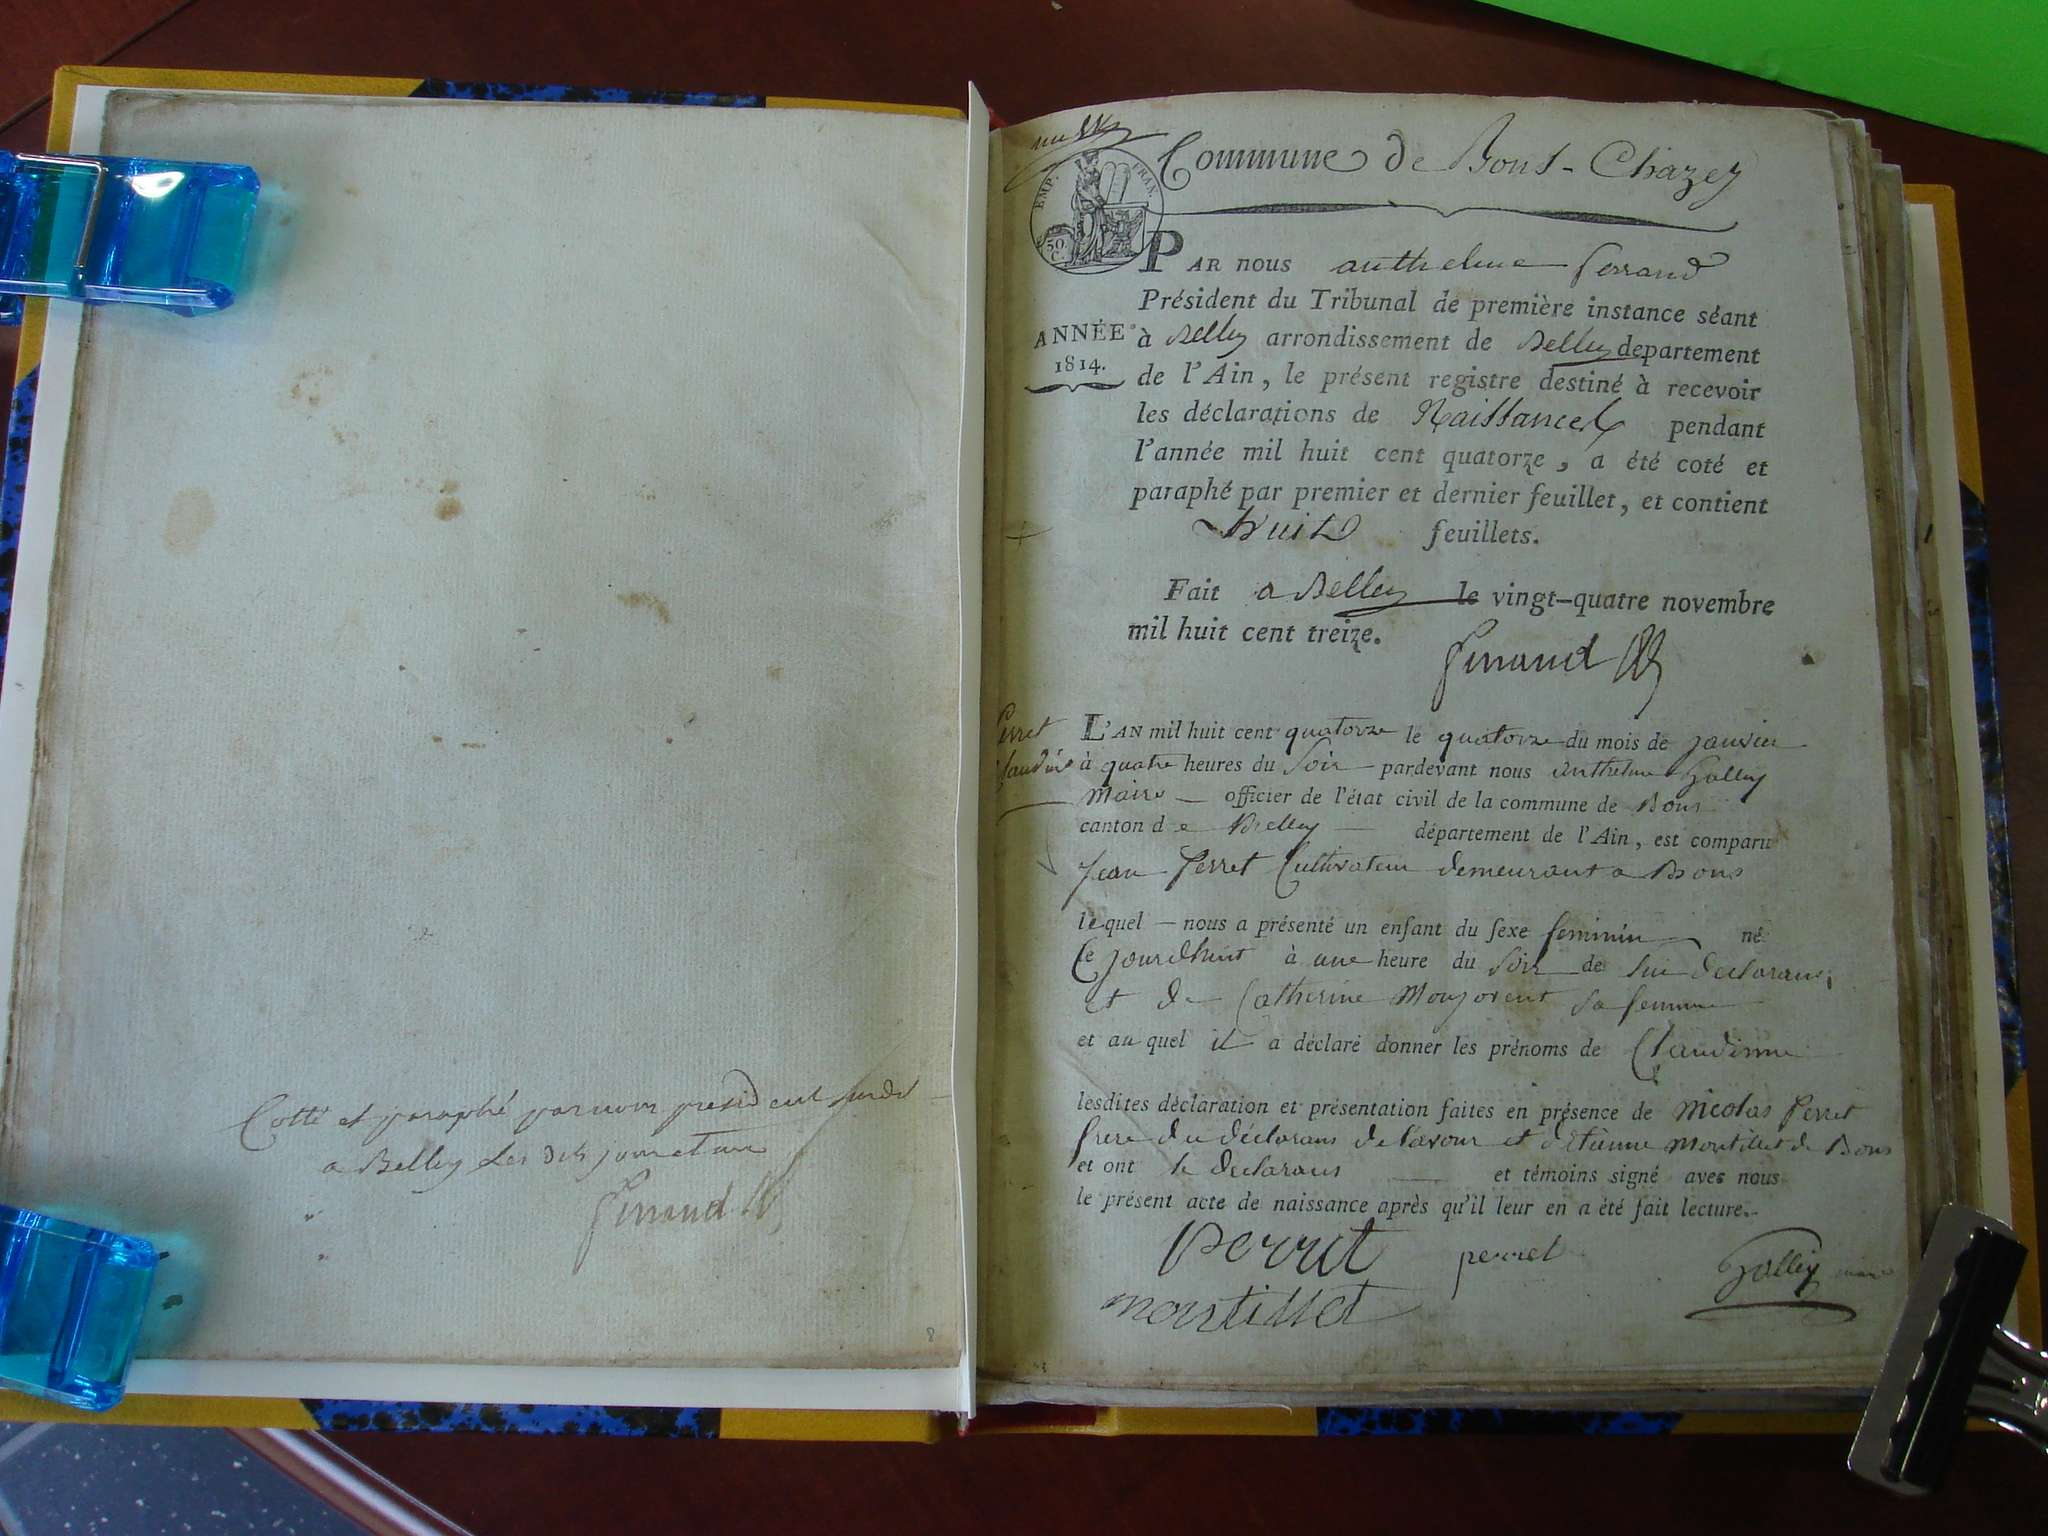 Cotté et paraphé par nous président susdit
a Belley les dits jour et an
Ferrand
8
Commune de Bons-Chazey
EMP. FRAN.
50.
C.
PAR nous anthelme ferrand
Président du Tribunal de première instance séant
ANNÉE
1814.
à Belley arrondissement de Belley departement
de l'Ain, le présent registre destiné à recevoir
les déclarations de Naissances pendant
l'année mil huit cent quatorze, a été coté et
paraphé par premier et dernier feuillet, et contient
huit feuillets.
Fait a Belley le vingt-quatre novembre
mil huit cent treize.
Ferrand
Perret
Claudine
L'AN mil huit cent quatorze le quatorze du mois de janvier
à quatre heures du Soir pardevant nous anthelme
Maire officier de l'état civil de la commune de Bons
canton de Belley département de l'Ain, est comparu
Jean Perret Cultivateur demeurant a Bons
lequel nous a présenté un enfant du sexe feminin né
Ce jourdhuit à une heure du Soir de lui declarans,
et de Catherine Monjovent sa femme
et au quel il a déclaré donner les prénoms de Claudinne
lesdites déclaration et présentation faites en présence de Nicolas Perret
frere du déclarans de Lavour et d'Etienne Montillet de Bons
et ont le declarans et témoins signé avec nous
le présent acte de naissance après qu'il leur en a été fait lecture.
perret perret
montillet